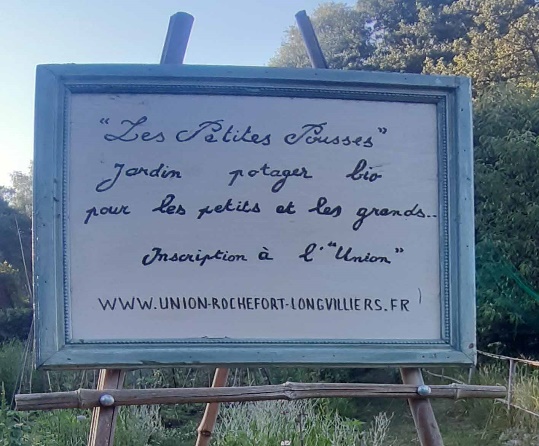 "Les Petites Pousses"
Jardin potager bio
pour les petits et les grands..
Inscription à l'"Union"
WWW.UNION-ROCHEFORT-LONGVILLIERS.FR